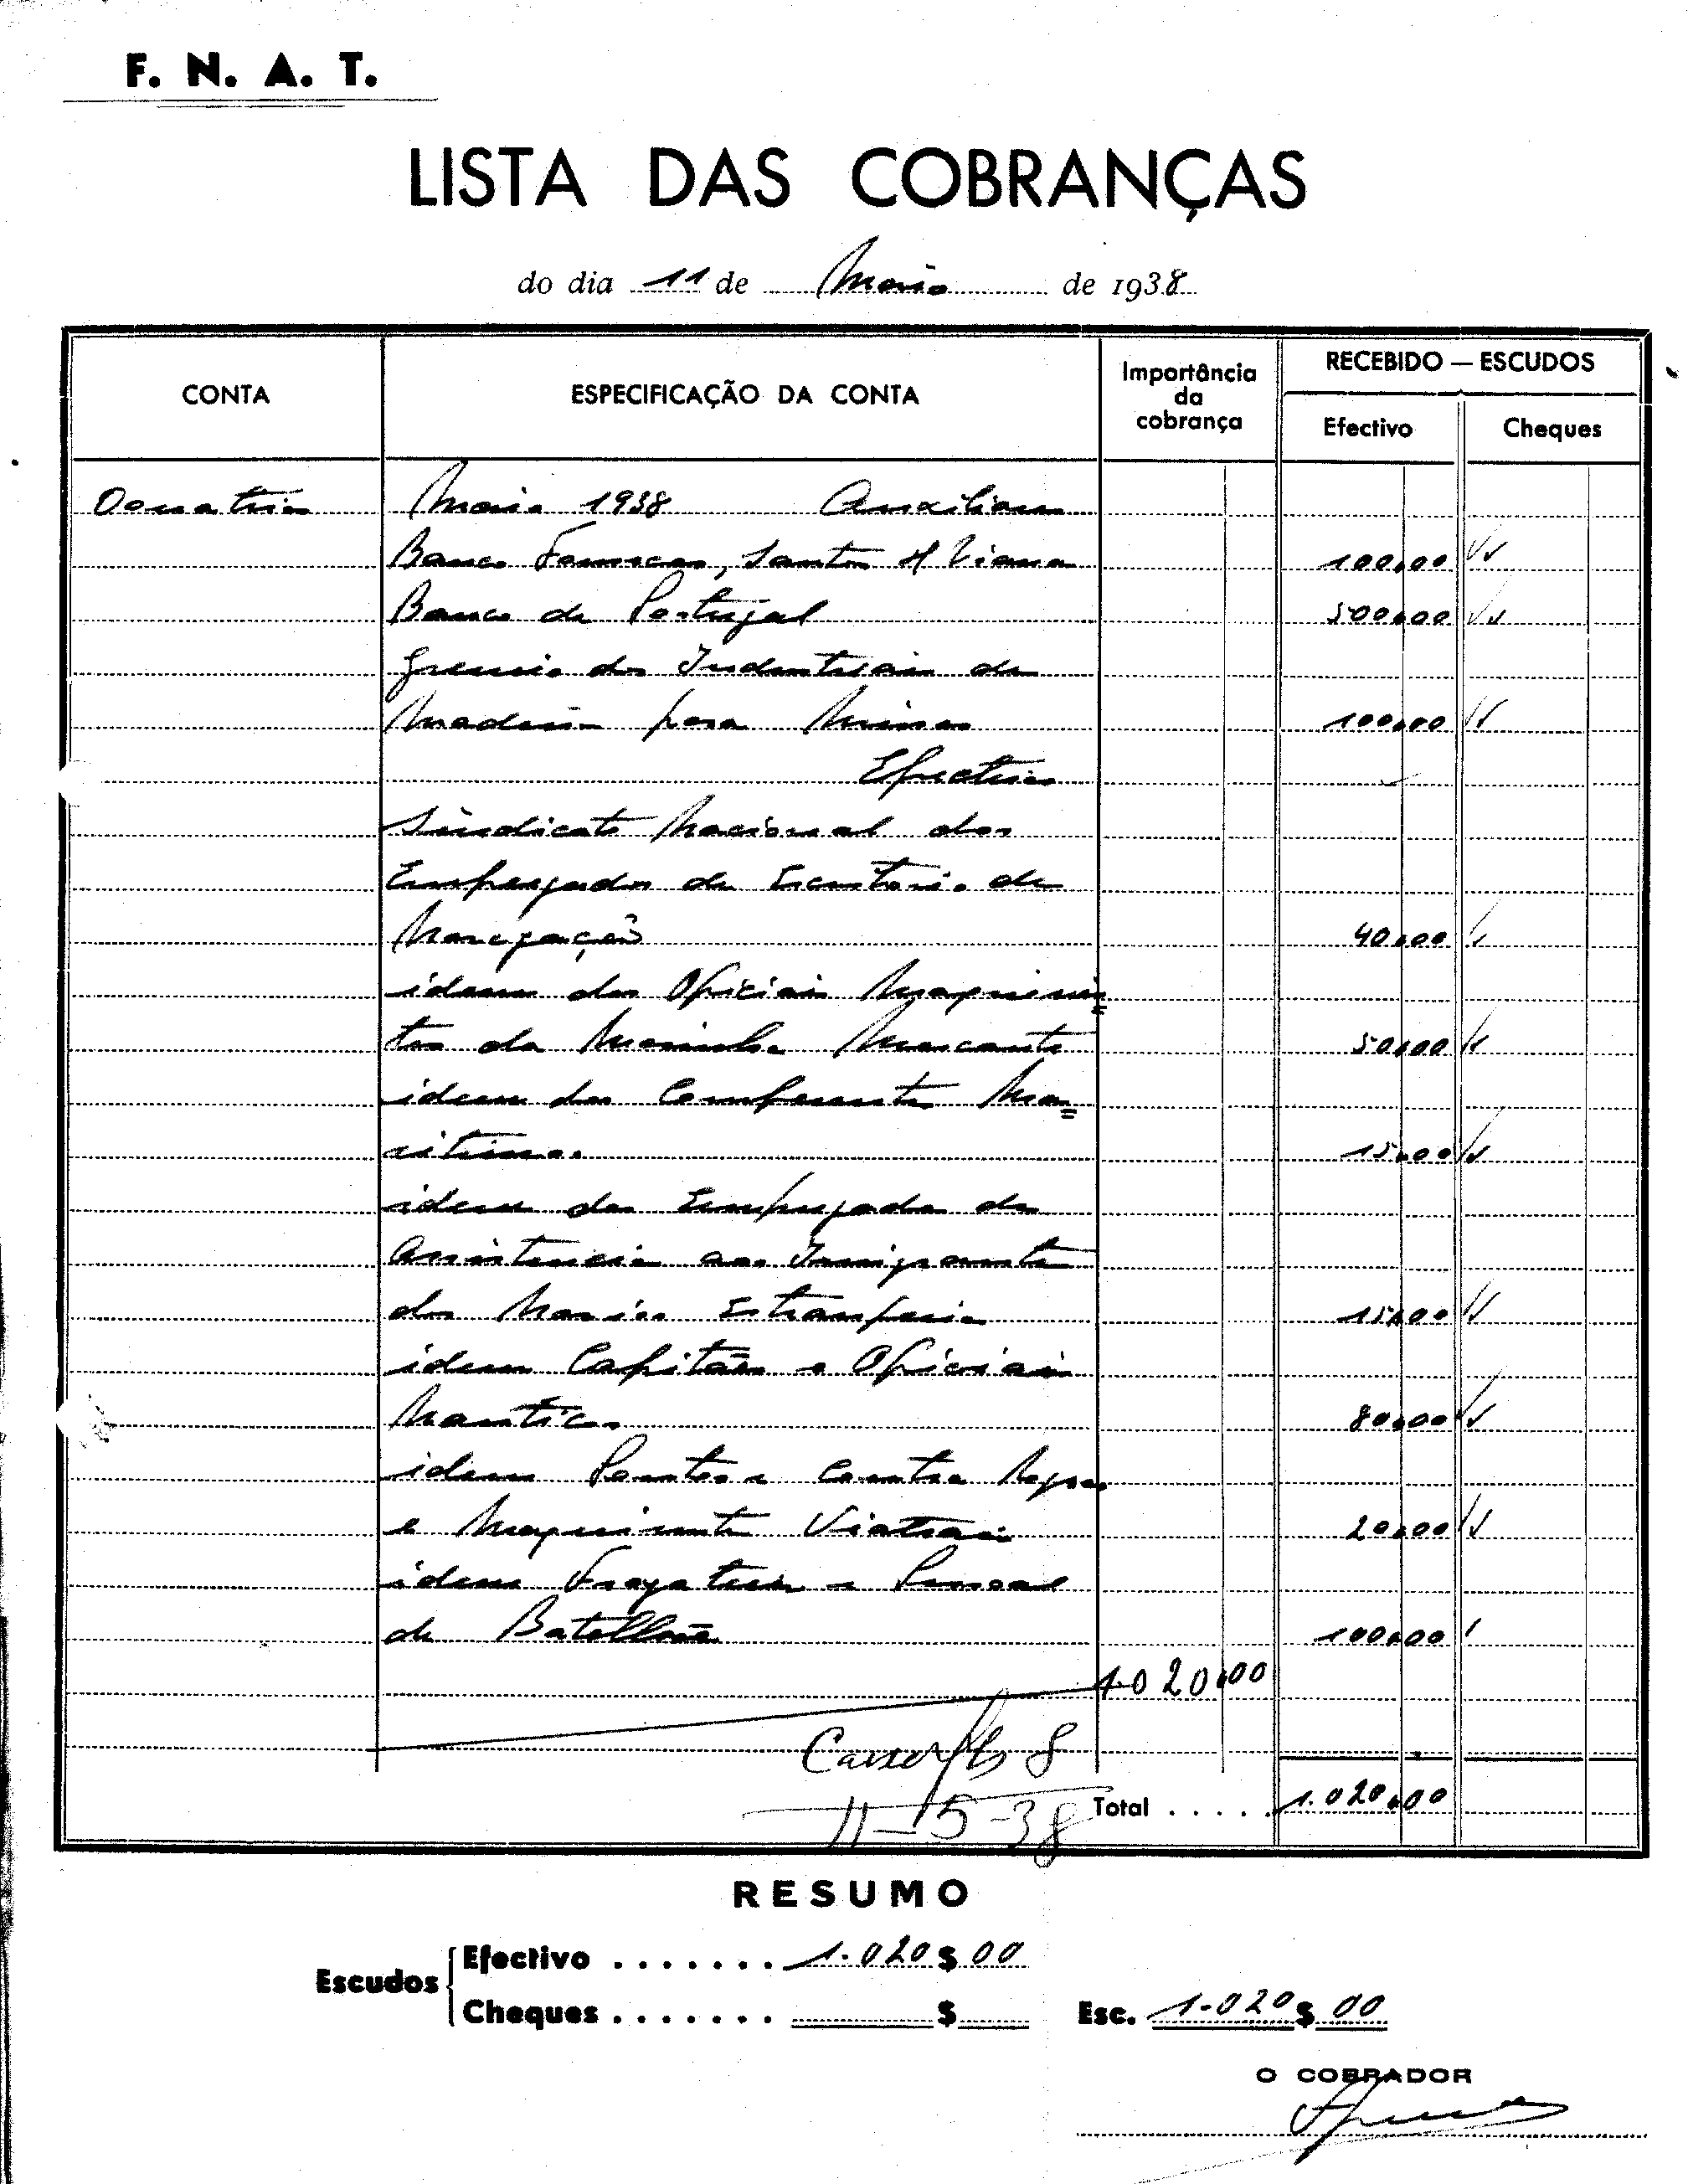 F. N. A. T.
LISTA DAS COBRANÇAS
do dia 11 de Maio de 1938
CONTA
ESPECIFICAÇÃO DA CONTA
Importância
da
cobrança
RECEBIDO — ESCUDOS
Efectivo
Cheques
Maio 1938 Auxiliares
Banco Fonsecas, Santos & Viana 100,00
Banco de Portugal 500,00
Gremio dos Industriais de
Madeira para Minas 100,00
Efectivos
Sindicato Nacional dos
Empregados de Escritorio de
Navegação 40,00
idem dos Oficiais Maquinis=
tas da Marinha Mercante 50,00
idem dos Ma=
ritimos 15,00
idem dos Empregados de
Assistencia aos Imigrantes
dos Navios Estrangeiros 15,00
idem Capitães e Oficiais
Nauticos 80,00
idem
e 20,00
idem Fragateiros e Pessoal
de 100,00
1.020,00
11-5-38
Total . . . . . 1.020,00
RESUMO
Escudos
Efectivo . . . . . . . 1.020$00
Cheques . . . . . . . $
Esc. 1.020$00
O COBRADOR